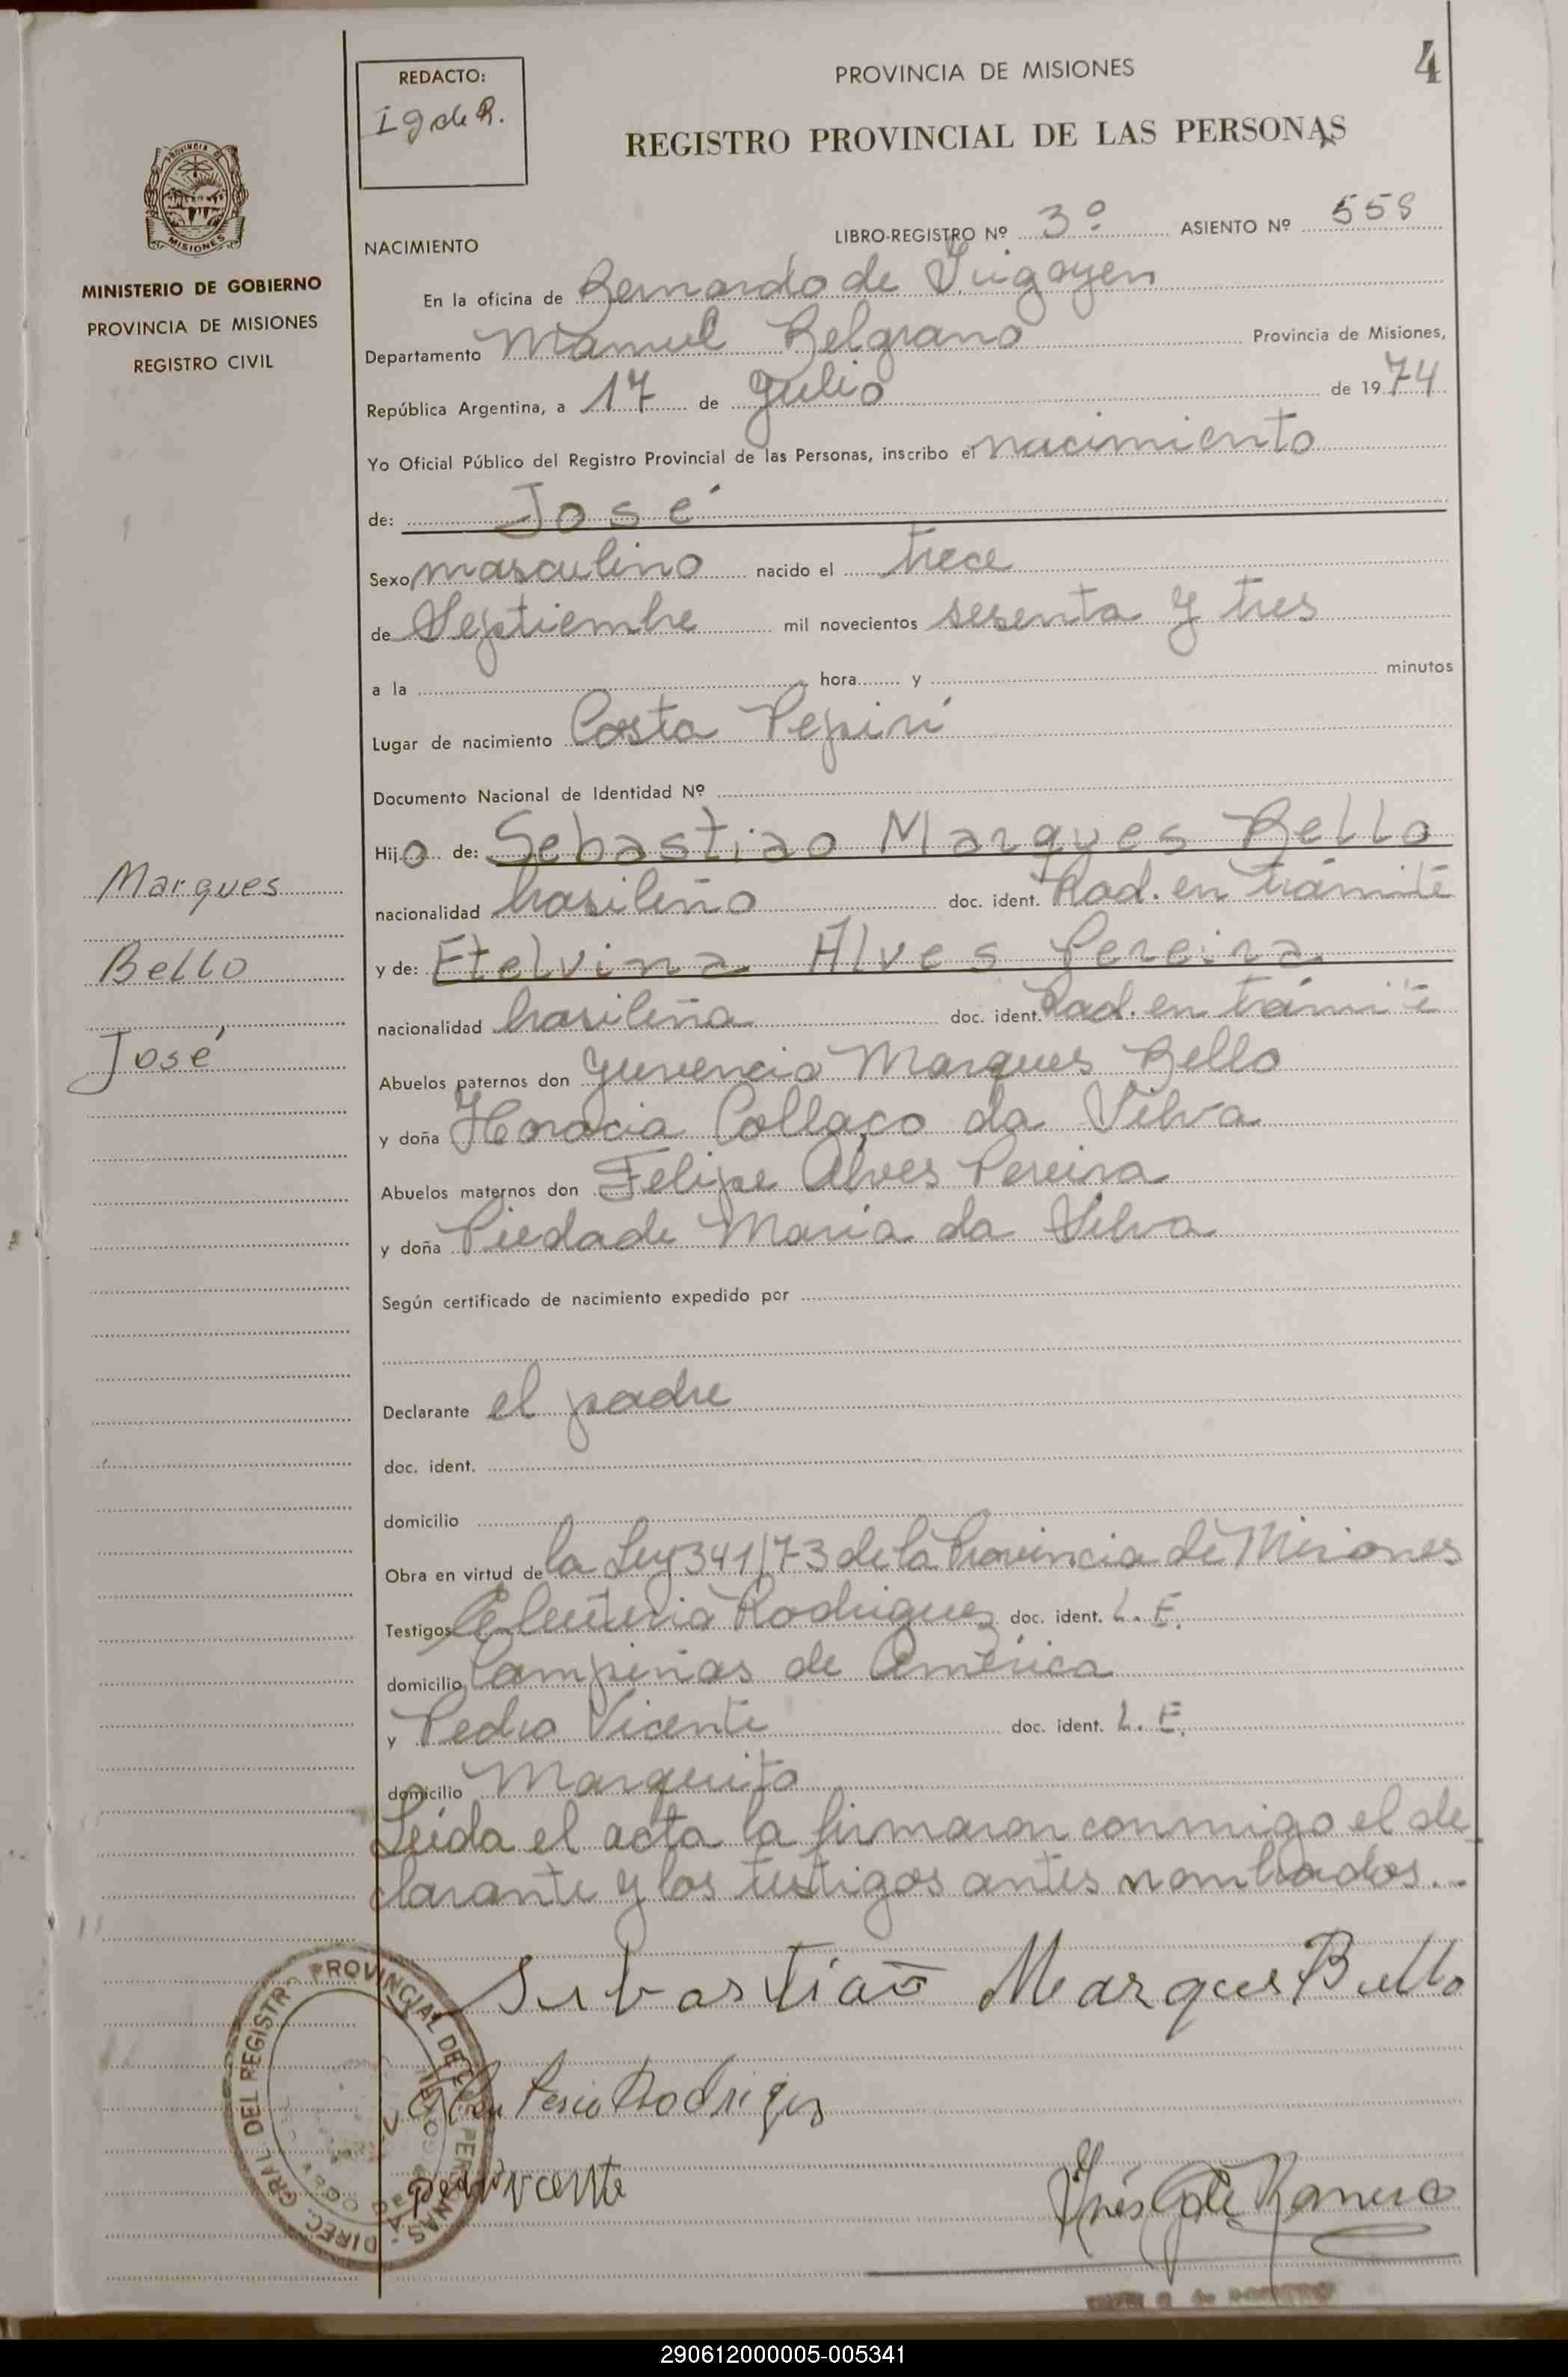 4
REDACTO:
I g de R.
PROVINCIA DE MISIONES
REGISTRO PROVINCIAL DE LAS PERSONAS
MISIONES
MINISTERIO DE GOBIERNO
PROVINCIA DE MISIONES
REGISTRO CIVIL
NACIMIENTO
LIBRO-REGISTRO Nº 3º ASIENTO Nº 558
En la oficina de Bernardo de Irigoyen
Departamento Manuel Belgrano Provincia de Misiones,
República Argentina, a 17 de Julio de 1974
Yo Oficial Público del Registro Provincial de las Personas, inscribo el nacimiento
de: José
Sexo masculino nacido el trece
de Septiembre mil novecientos sesenta y tres
a la hora y minutos
Lugar de nacimiento Costa Pepirí
Documento Nacional de Identidad Nº
Hijo de: Sebastiao Marques Bello
nacionalidad brasileño doc. ident. Rad. en trámite
y de: Etelvina Alves Pereira
nacionalidad brasileña doc. ident. Rad. en trámite
Abuelos paternos don Juvencio Marques Bello
y doña Horacia Collaço da Silva
Abuelos maternos don Felipe Alves Pereira
y doña Piedade Maria da Silva
Marques
Bello
José
Según certificado de nacimiento expedido por
Declarante el padre
doc. ident.
domicilio
Obra en virtud de la Ley 341/73 de la Provincia de Misiones
Testigos Eleuterio Rodriguez doc. ident. L. E.
domicilio Campiñas de América
y Pedro Vicente doc. ident. L. E.
domicilio Marquito
Leída el acta la firmaron conmigo el de
clarante y los testigos antes nombrados...
Sebastiaō Marques Bello
Rodriges
Inés G de Romero
DIREC. GRAL. DEL REGISTRO PROVINCIAL DE LAS PERSONAS
290612000005-005341